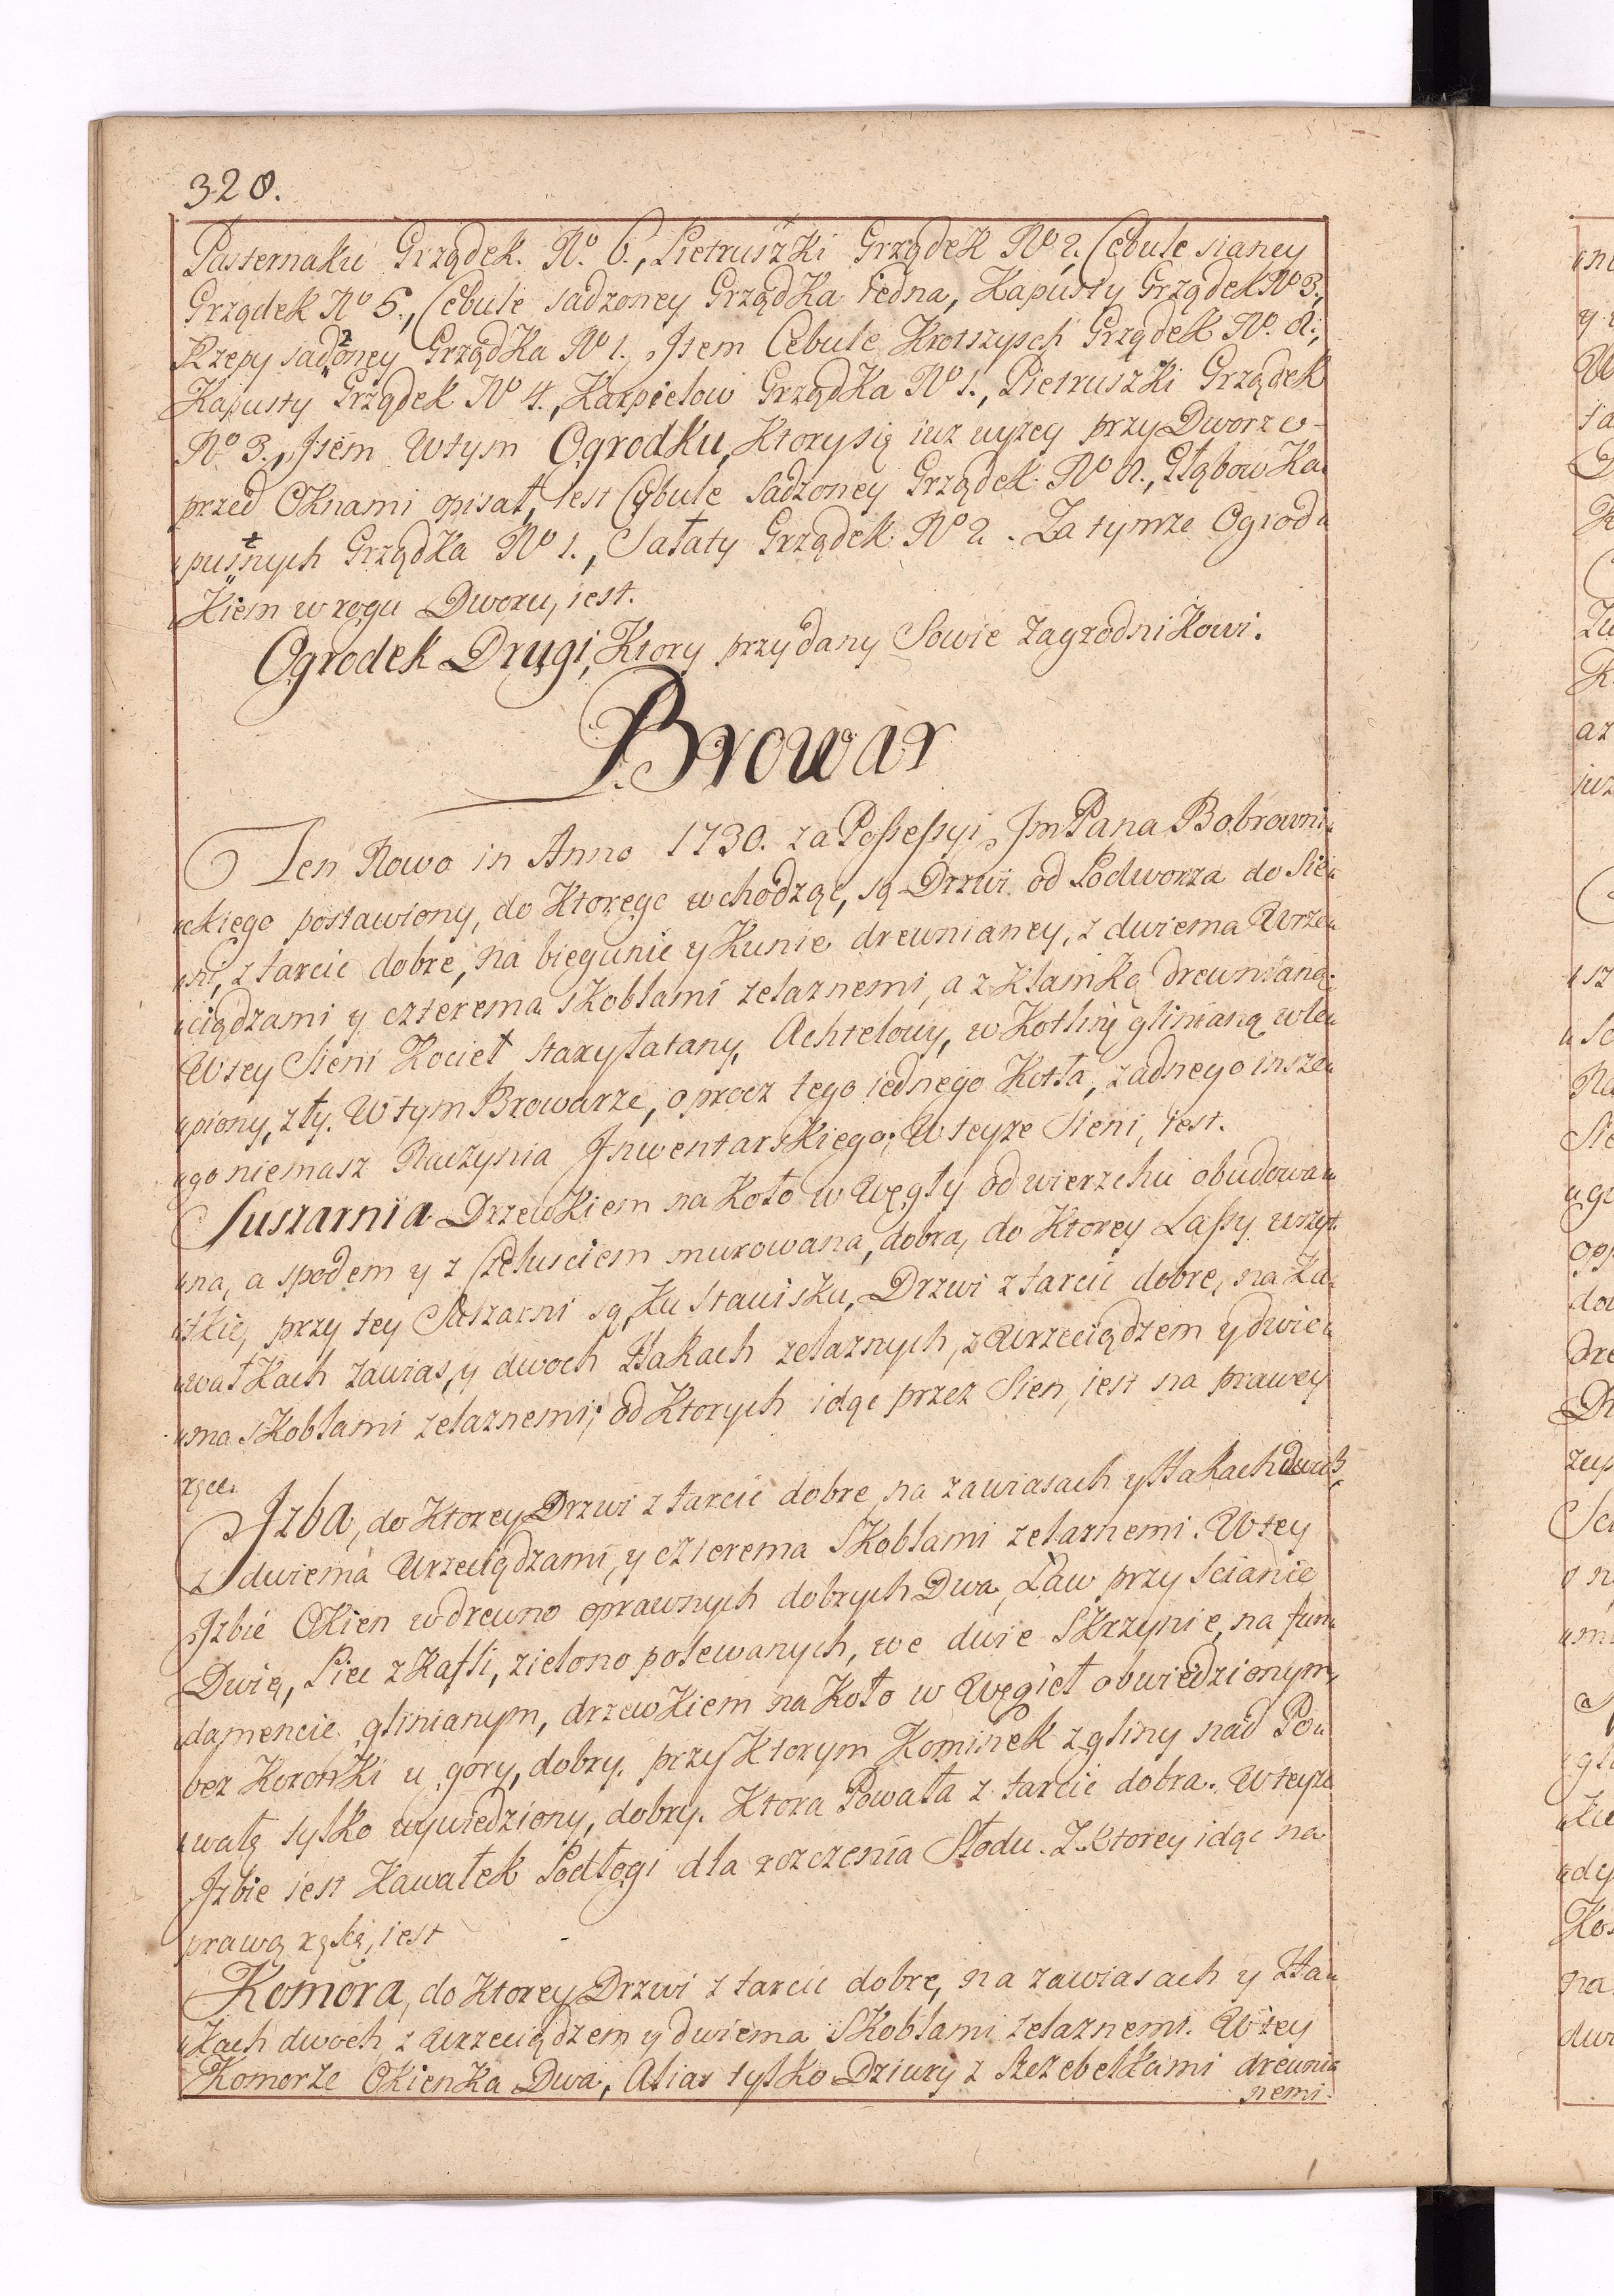 320.
Pasternaku Grządek. No. 6., Pietruszki Grządek No 2. Cebule sianey
Grządek No 5., Cebule sadzoney Grządka iedna, Kapusty Grządek No 3.,
Rzepy sadzoney Grządka No 1. Item Cebule Krotszych Grządek No.
Kapusty Grządek No 4., Karpielow Grządka No 1., Pietruszki Grządek
No 3., Item Wtym Ogrodku, Ktory się iuz wyzey przy Dworze
przed Oknami opisał, iest Cybule sadzoney Grządek No Głąbow Ka„
„pustnych Grządka No 1., Sałaty Grządek No 2. Za tymze Ogrod„
Kiem w rogu Dworu, iest.
Ogrodek Drugi, Ktory przydany Sowie Zagrodnikowi.
Browar
Ten Nowo in Anno 1730. za Possessyi Jm Pana Bobrowni„
„ckiego postawiony, do Ktorego wchodząc, są Drzwi od Podworza do Sie„
„ni, z tarcic dobre, na biegunie y Kunie drewnianey, z dwiema Wrze„
„ciądzami y czterema skoblami zelaznemi, a z Klamką drewnianą.
Wtey Sieni Kocieł stary łatany, Achtelowy, w Kotlinę glinianą wle„
„piony, zły. Wtym Browarze, oprocz tego iednego Kotła, zadnego insze„
„go niemasz Naczynia Inwentarskiego; Wteyze Sieni, iest.
Suszarnia Drzewkiem na Koło w Węgły od wierzchu obudowa„
„na, a spodem y z Czeluściem murowana, dobra, do Ktorey Lassy wszyt„
„skie, przy tey Suszarni są, Ku Stawisku, Drzwi z tarcic dobre, na Ka„
„wałkach zawias, y dwoch Hakach zelaznych, z Wrzeciądzem y dwie„
„ma skoblami zelaznemi; od Ktorych idąc przez Sien, iest na prawey
ręce.
Izba, do Ktorey Drzwi z tarcic dobre, na zawiasach y Hakach dwoch,
z dwiema Wrzeciądzami, y czterema Skoblami zelaznemi. Wtey
Izbie Okien w drewno oprawnych dobrych Dwa, Ław przy Scianie
Dwie, Piec z Kafli, zielono polewanych, we dwie Skrzynie, na fun„
damencie glinianym, drzewkiem na Koło w Węgieł obwiedzionym,
bez Koronki u gory, dobry. przy Ktorym Kominek z gliny nad Po„
„wałę tylko wywiedziony, dobry. Ktora Powała z tarcic dobra. Wteyze
Izbie iest Kawałek Podłogi dla rozczenia Słodu. Z Ktorey idąc na
prawą rękę, iest
Komora, do Ktorey Drzwi z tarcic dobre, na zawiasach y Ha„
„kach dwoch, z Wrzeciądzem y dwiema Skoblami zelaznemi. Wtey
Komorze Okienka Dwa, Alias tylko Dziury z Szczebelkami drewnia
nemi.